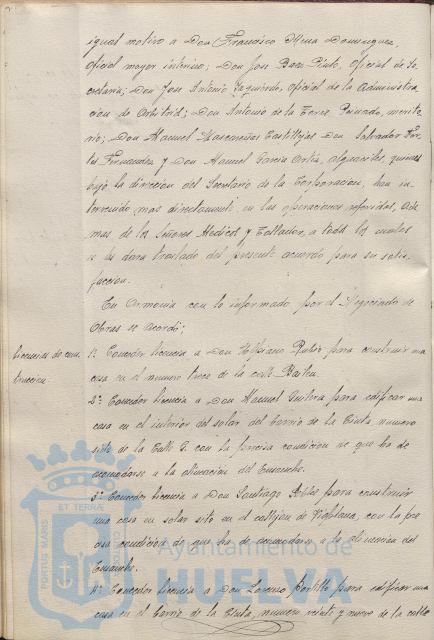 igual motivo a Don Francisco Mesa Dominguez,
Oficial mayor interino; Don Jose Baez Pinto, Oficial de Se-
cretaria; Don Jose Antonio Izquierdo, Oficial de la Administra-
cion de Arbitrios; Don Antonio de la Torre Peinado, merito-
rio; Don Manuel Mascareñas Castillejos Don Salvador
Fernandez y Don Manuel Garcia Ortiz, alguaciles, quienes
bajo la direccion del Secretario de la Corporacion, han in-
tervenido mas directamente en las operaciones referidas, ade-
mas de los Señores Medicos y Tallador, a todos los cuales
se les dara traslado del presente acuerdo para su satis-
faccion.
En armonia con lo informado por el Negociado de
Obras se acordó;
Licencias de cons
truccion.
1º Conceder licencia a Don Rubio para construir una
casa en el numero trece de la calle Bailen.
2º Conceder licencia a Don Manuel para edificar una
casa en el interior del solar del barrio de la Cinta, numero
siete de la Calle G. con la precisa condicion de que ha de
acomodarse a la alineacion del Ensanche.
3º Conceder licencia a Don Santiago Robles para construir
una casa en solar sito en el callejon de, con la pre-
cisa condicion de que ha de acomodarse a la alineacion del
Ensanche.
4º Conceder licencia a Don Lorenzo Portillo para edificar una
casa en el barrio de la Cinta, numero veinte y nueve de la calle
PORTUS MARIS ET TERRÆ
Ayuntamiento de
HUELVA